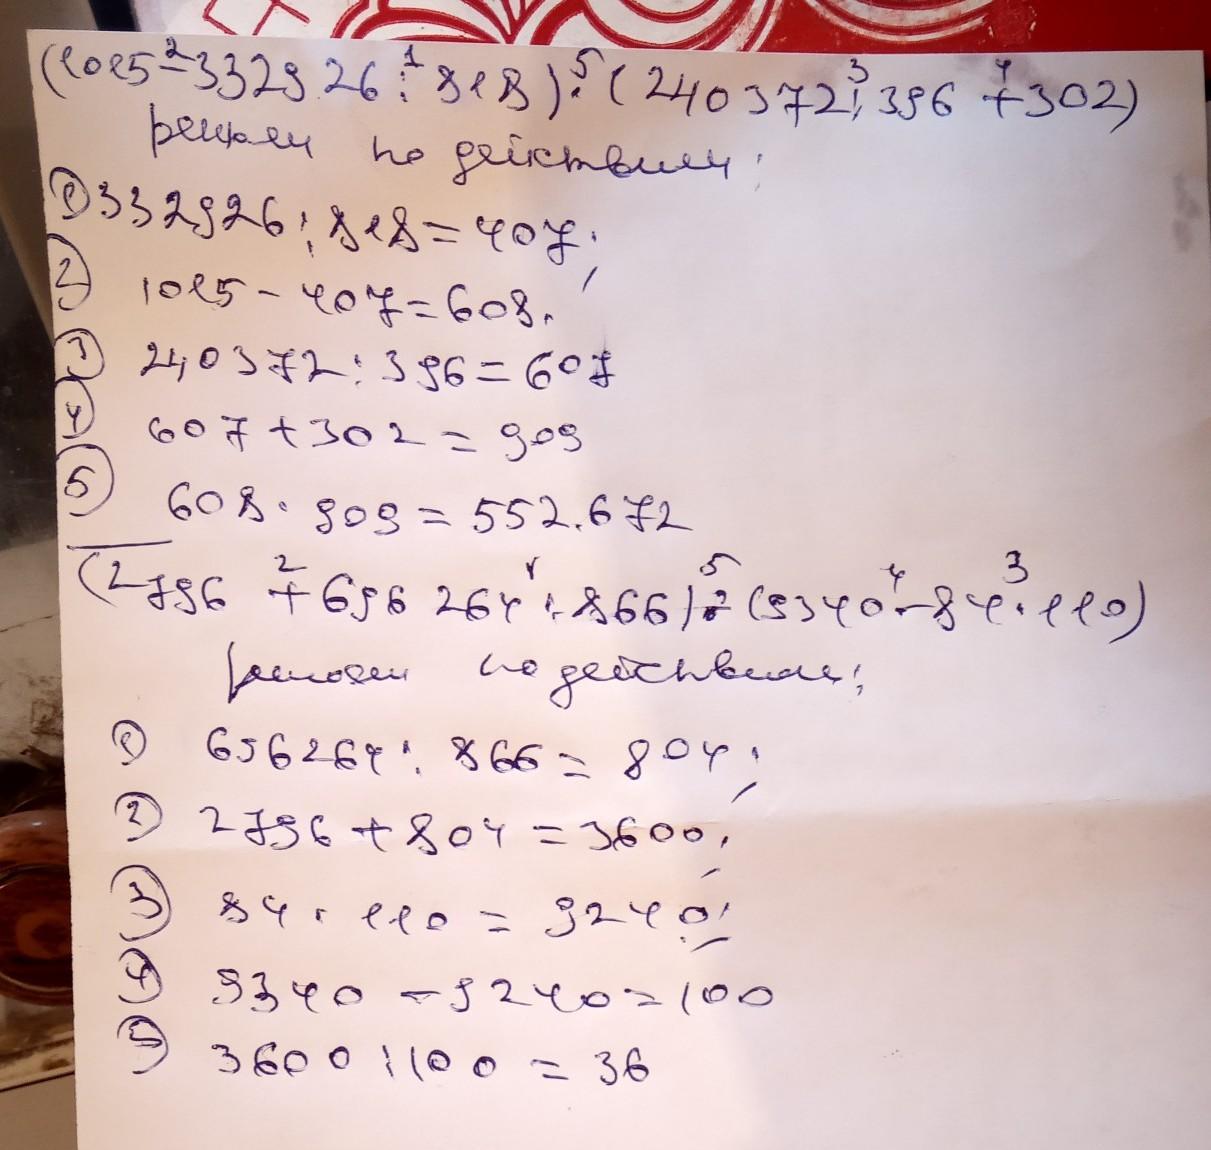 (1015 - 332926 : 818) · (240372 : 396 + 302)
решаем по действиям:
① 332926 : 818 = 407;
② 1015 - 407 = 608.
③ 240372 : 396 = 607
④ 607 + 302 = 909
⑤ 608 · 909 = 552.672
(2796 + 696264 : 866) : (9340 - 84 · 110)
решаем по действиям:
① 696264 : 866 = 804;
② 2796 + 804 = 3600;
③ 84 · 110 = 9240;
④ 9340 - 9240 = 100
⑤ 3600 : 100 = 36